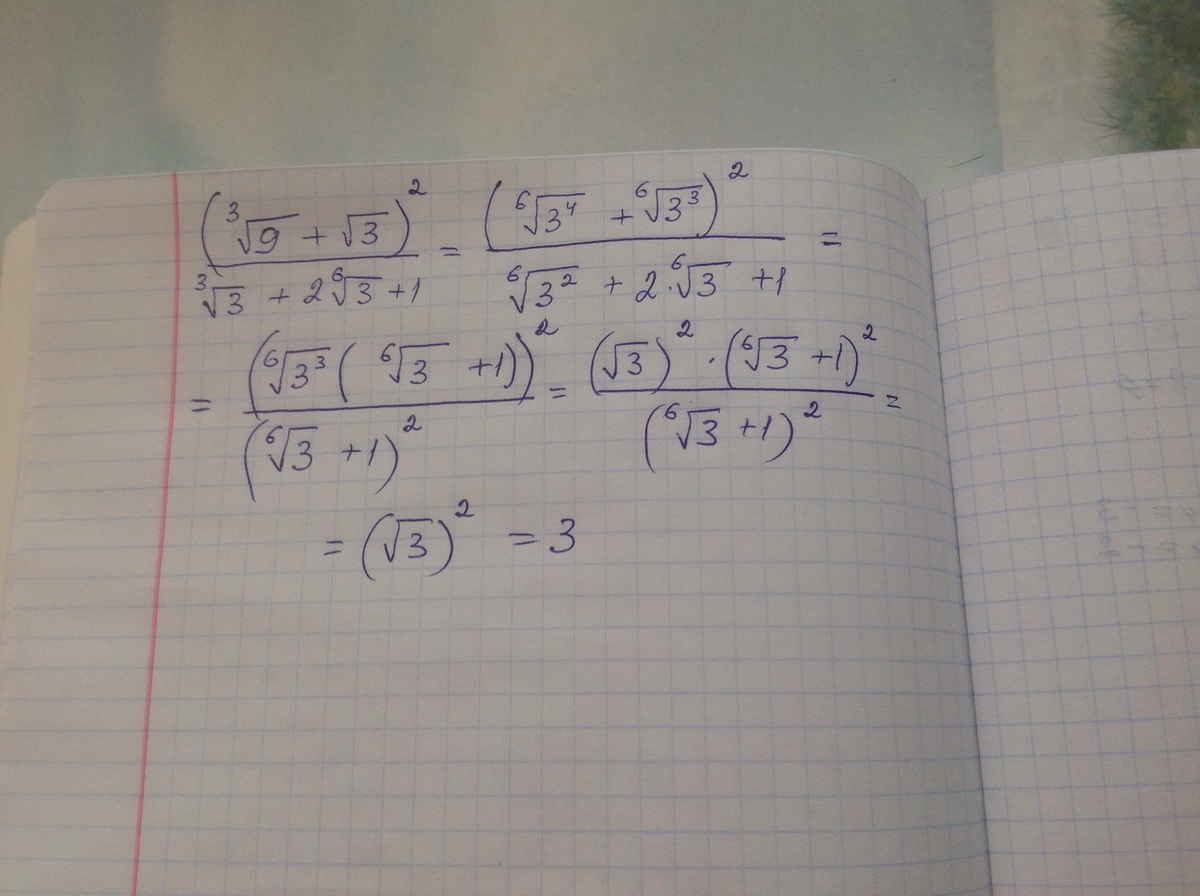 (³√9 + √3)² / (³√3 + 2⁶√3 + 1) = (⁶√3⁴ + ⁶√3³)² / (⁶√3² + 2·⁶√3 + 1) =
= (⁶√3³ (⁶√3 + 1))² / (⁶√3 + 1)² = (√3)² · (⁶√3 + 1)² / (⁶√3 + 1)² =
= (√3)² = 3